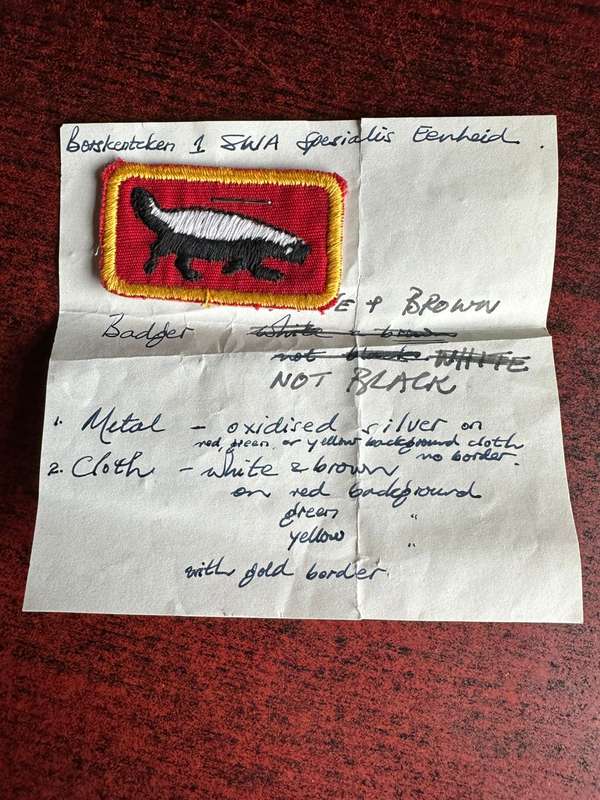 Borskenteken 1 SWA Spesialis Eenheid.
E + BROWN
Badger white & brown
not black WHITE
NOT BLACK
1. Metal - oxidised silver on
red, green, or yellow background cloth
no border.
2. Cloth - white & brown
on red background
green "
yellow "
with gold border.